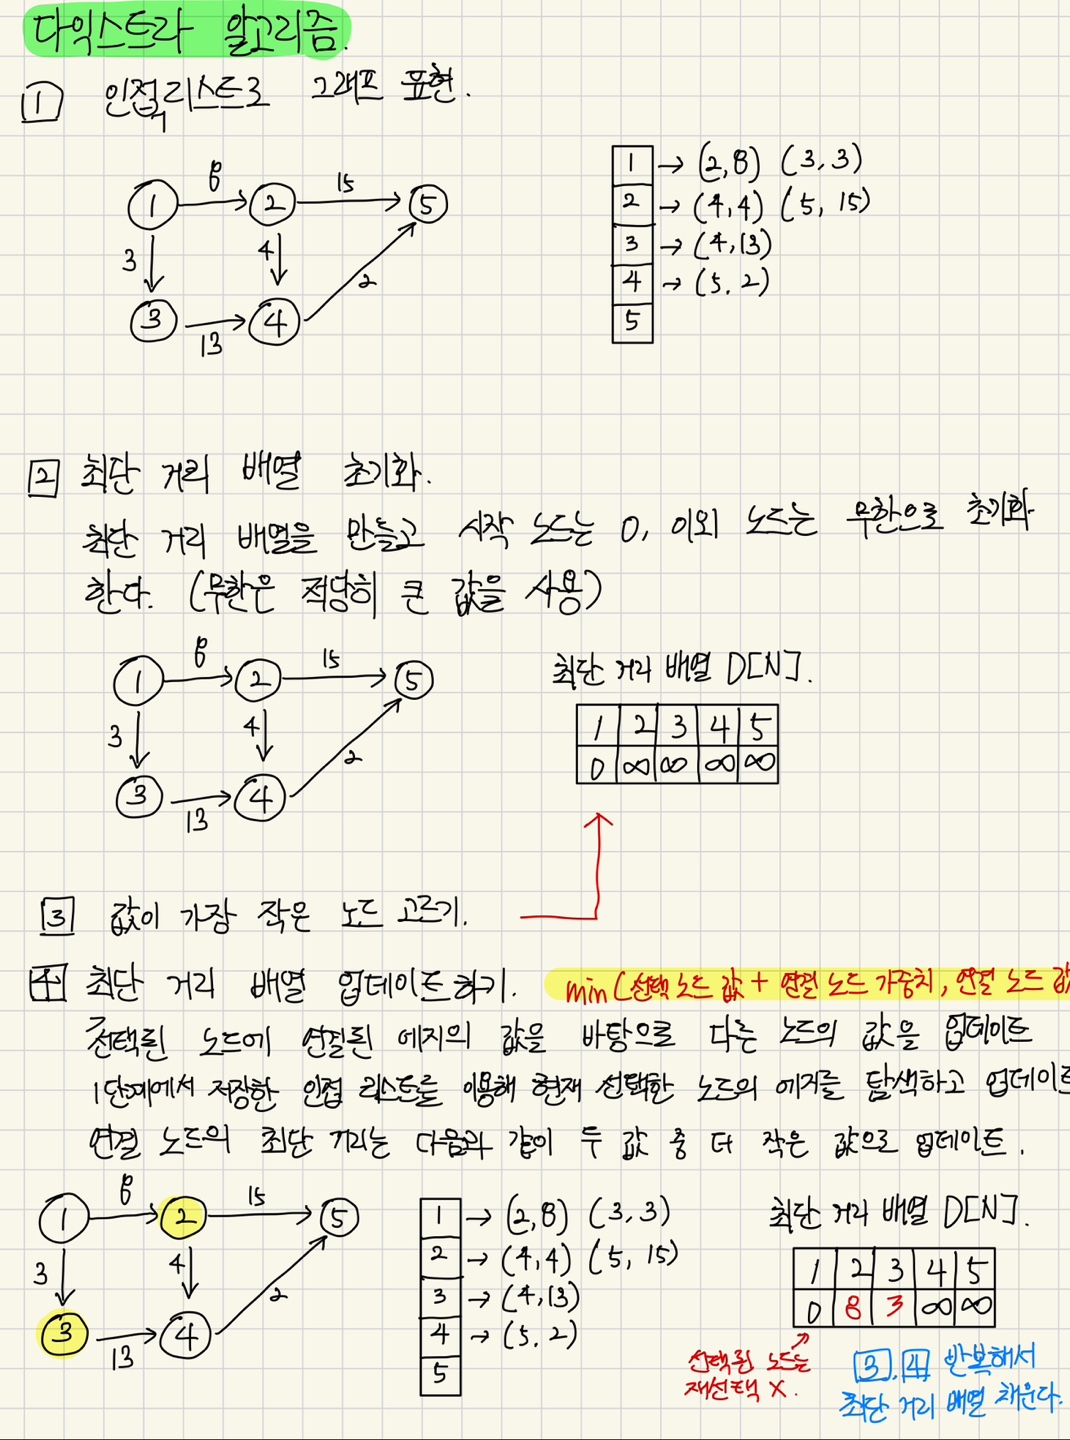 다익스트라 알고리즘.
1 인접리스트로 그래프 표현.
8 15
1 2 5
3 4 2
3 4
13
1 → (2,8) (3,3)
2 → (4,4) (5, 15)
3 → (4,13)
4 → (5, 2)
5
2 최단 거리 배열 초기화.
최단 거리 배열을 만들고 시작 노드는 0, 이외 노드는 무한으로 초기화
한다. (무한은 적당히 큰 값을 사용)
8 15
1 2 5
3 4 2
3 4
13
최단 거리 배열 D[N].
1 2 3 4 5
0 ∞ ∞ ∞ ∞
3 값이 가장 작은 노드 고르기.
4 최단 거리 배열 업데이트하기. min(선택 노드 값 + 연결 노드 가중치, 연결 노드 값
선택된 노드에 연결된 에지의 값을 바탕으로 다른 노드의 값을 업데이트
1단계에서 저장한 인접 리스트를 이용해 현재 선택한 노드의 에지를 탐색하고 업데이트
연결 노드의 최단 거리는 다음과 같이 두 값 중 더 작은 값으로 업데이트.
8 15
1 2 5
3 4 2
3 4
13
1 → (2,8) (3,3)
2 → (4,4) (5, 15)
3 → (4,13)
4 → (5, 2)
5
최단 거리 배열 D[N].
1 2 3 4 5
0 8 3 ∞ ∞
선택된 노드는
재선택 X.
3, 4 반복해서
최단 거리 배열 채운다.